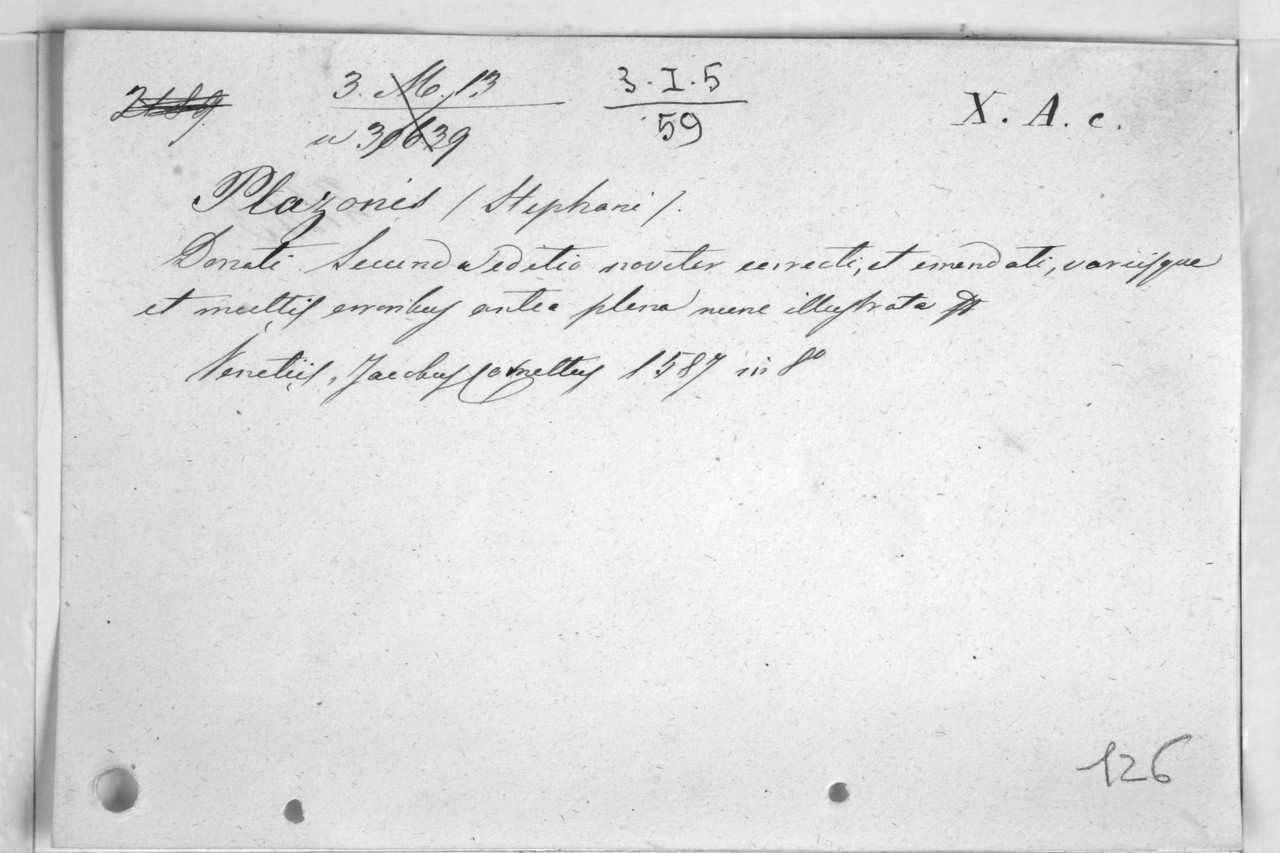 2489 3. M. 13 3. I. 5 X. A. c.
n 39639 59
Plazonis (Stephani).
Donati Secunda editio noviter correcti, et emendati, variisque
et multis erroribus antea plena nunc illustrata
Venetiis, Jacobus Cornettus 1587 in 8º
126